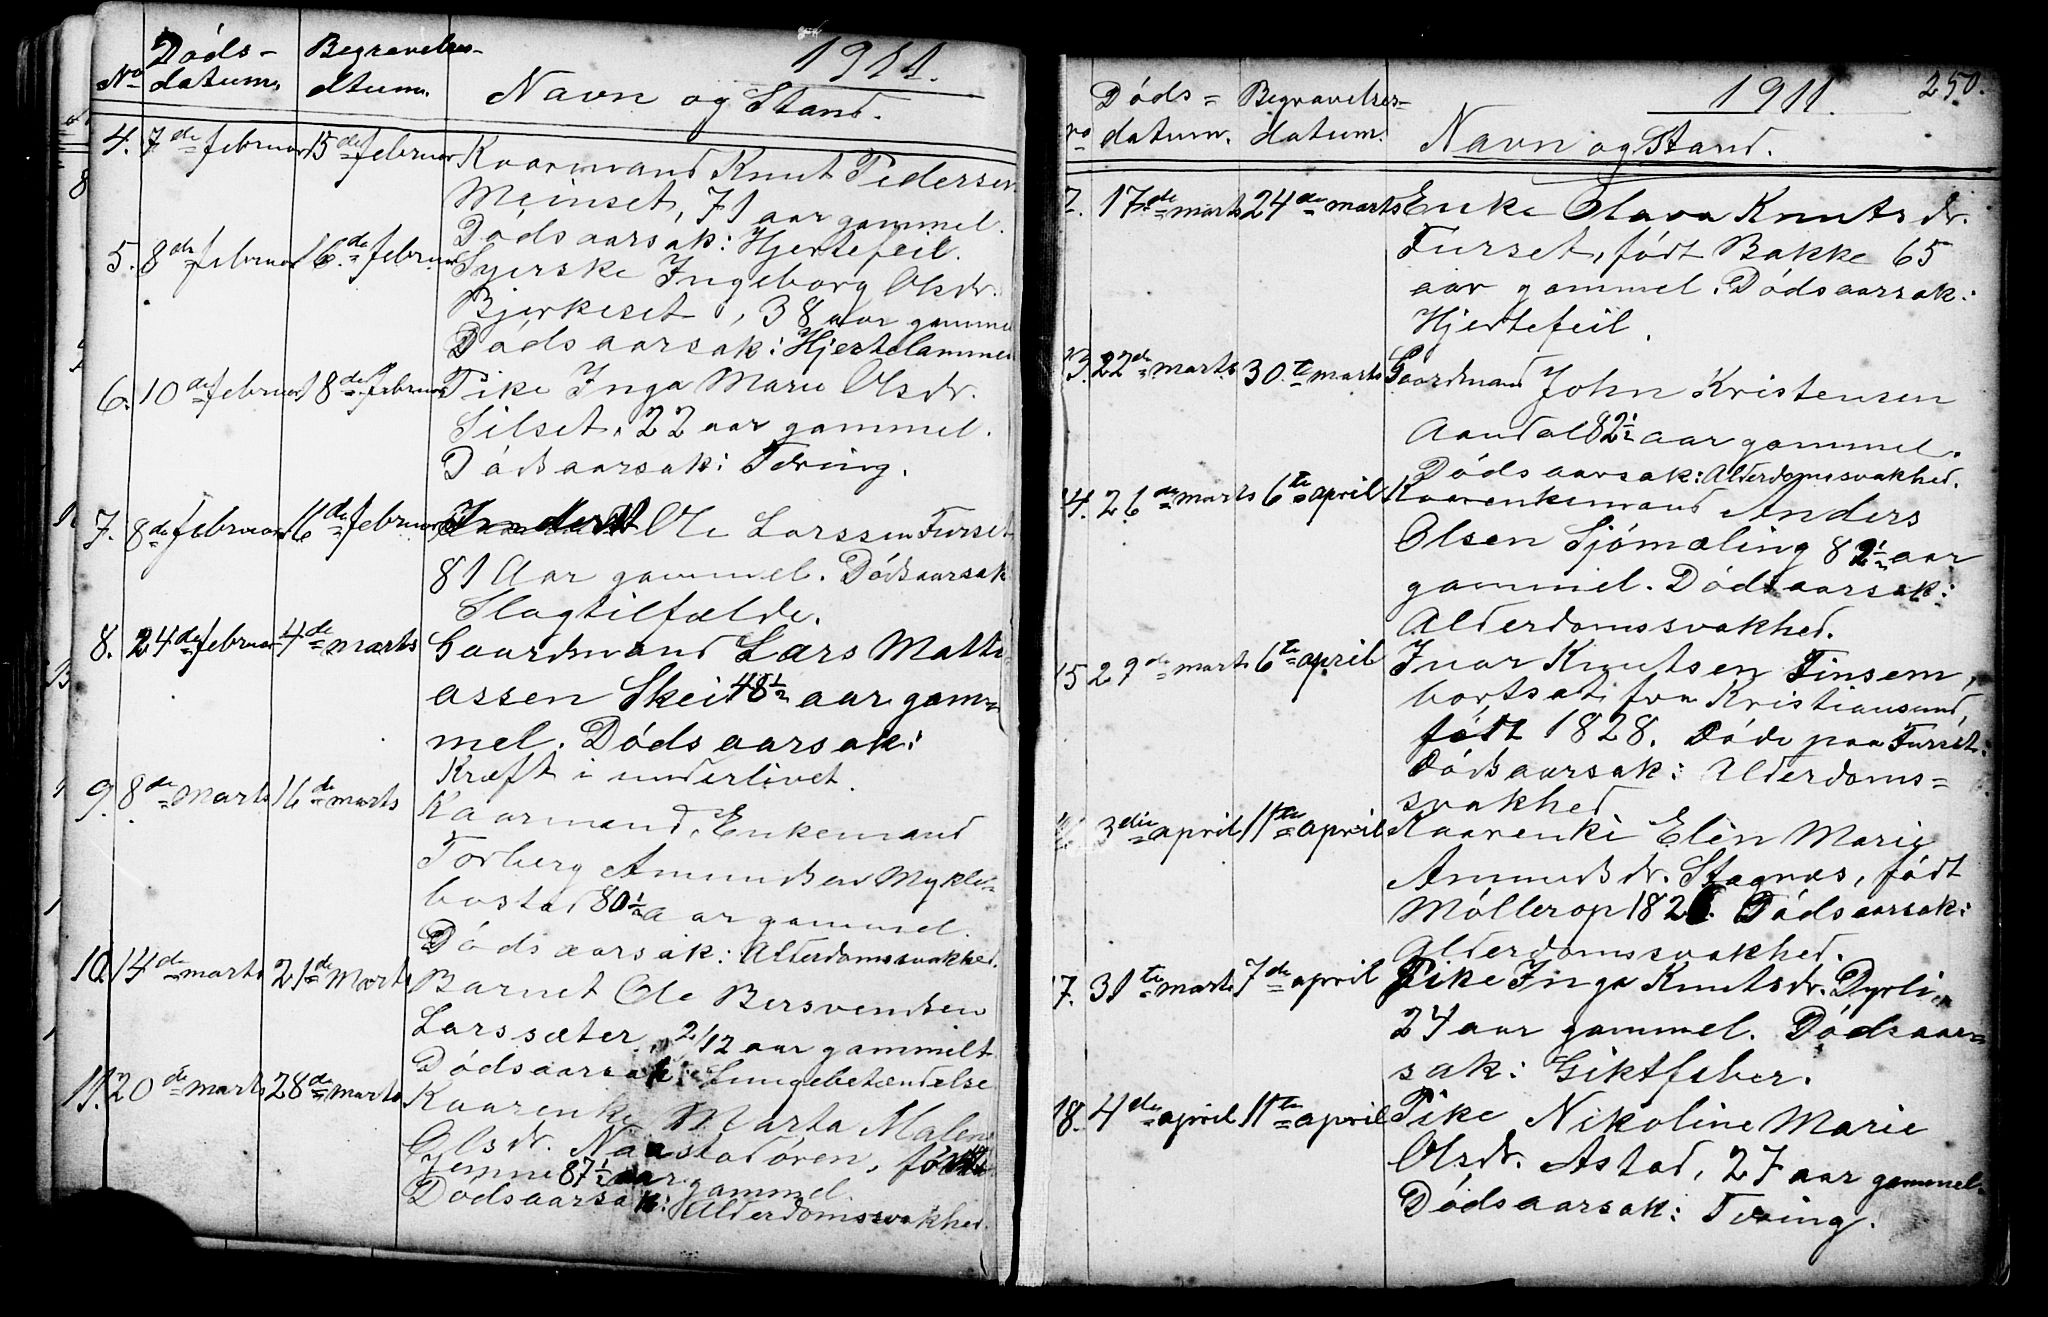 1911.
No Døds- datum. Begravelses- dtum. Navn og Stand.
4. 7de februar 15de februar Kaarmand Knut Pedersen
Meinset, 71 aar gammel.
Dødsaarsak: Hjertefeil.
5. 8de februar 16de februar Syerske Ingeborg Olsdr.
Bjerkeset, 38 aar gammel
Dødsaarsak: Hjertelammel
6. 10de februar 18de februar Pike Inga Marie Olsdr.
Silset, 22 aar gammel.
Dødsaarsak: Tæring.
7. 8de februar 16de februar Ole Larssen Furset
81 Aar gammel. Dødsaarsak
Slagtilfælde.
8. 24de februar 4de marts Gaardmand Lars Matti
assen Skei 48 1/2 aar gam-
mel. Dødsaarsak:
Kræft i underlivet.
9. 8de marts 16de marts Kaarmand, Enkemand
Torberg Amundsen Mykle-
bostad 80 1/2 aar gammel.
Dødsaarsak: Alderdomssvakhed.
10. 14de marts 21de Marts Barnet Ole Bersvendsen
Larssæter, 2/12 aar gammelt
Dødsaarsak: Lungebetændelse
11. 20de marts 28de marts Kaarenke Marta Malene
Olsdr. Naustadøren, født
Gjemne 87 1/2 aar gammel.
Dødsaarsak: Alderdomssvakhed.
1911. 250.
no Døds- datum. Begravelses- datum. Navn og Stand.
2. 17de marts 24de marts Enke Olava Knutsdr.
Furset, født Bakke 65
aar gammel. Dødsaarsak:
Hjertefeil.
13. 22de marts 30te marts Gaardmand John Kristensen
Aandal 82 1/2 aar gammel.
Dødsaarsak: Alderdomssvakhed.
14. 26de marts 6te april Kaarenkemand Anders
Olsen Sjømæling 82 1/2 aar
gammel. Dødsaarsak:
Alderdomssvakhed.
15 29de marts 6te april Ivar Knutsen Tinsem,
bortsat fra Kristiansund,
født 1828. Døde paa Furset.
Dødsaarsak: Alderdoms-
svakhed.
3die april 11te april Kaarenke Elen Marie
Amundsdr. Stagnæs, født
Møllerop 1826. Dødsaarsak:
Alderdomssvakhed.
7. 31te marts 7de april Pike Inga Knutsdr. Dyrli
24 aar gammel. Dødsaar-
sak: Giktfeber.
18. 4de april 11te april Pike Nikoline Marie
Olsdr. Astad, 27 aar gammel.
Dødsaarsak: Tæring.